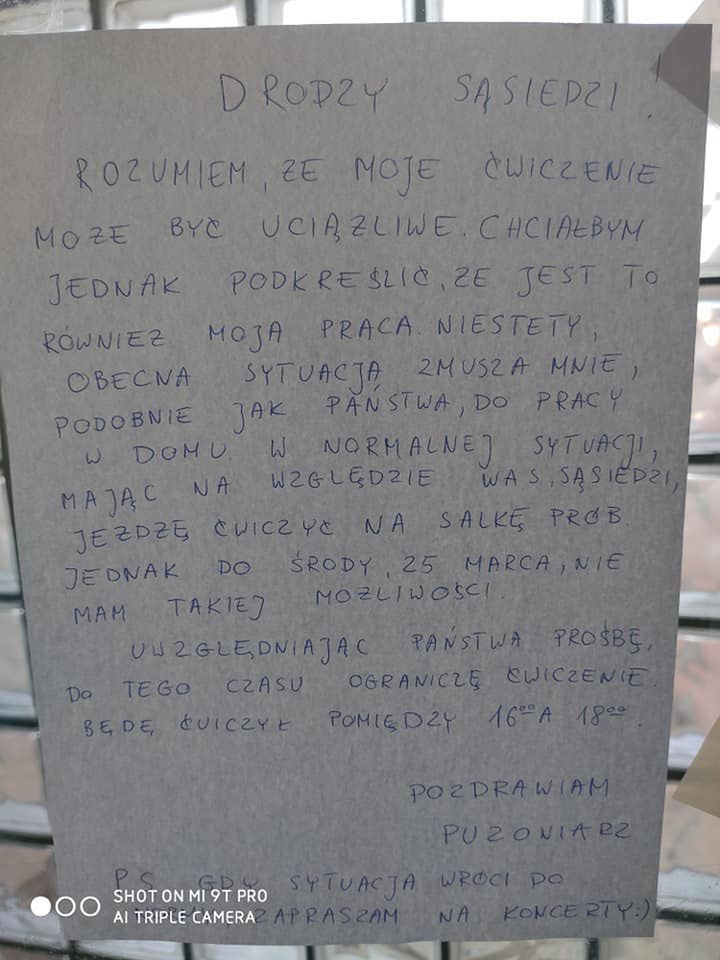 DRODZY SĄSIEDZI!
ROZUMIEM, ŻE MOJE ĆWICZENIE
MOŻE BYĆ UCIĄŻLIWE. CHCIAŁBYM
JEDNAK PODKREŚLIĆ, ŻE JEST TO
RÓWNIEŻ MOJA PRACA. NIESTETY,
OBECNA SYTUACJA ZMUSZA MNIE,
PODOBNIE JAK PAŃSTWA, DO PRACY
W DOMU. W NORMALNEJ SYTUACJI,
MAJĄC NA WZGLĘDZIE WAS, SĄSIEDZI,
JEŻDŻĘ ĆWICZYĆ NA SALKĘ PRÓB.
JEDNAK DO ŚRODY, 25 MARCA, NIE
MAM TAKIEJ MOŻLIWOŚCI.
UWZGLĘDNIAJĄC PAŃSTWA PROŚBĘ,
DO TEGO CZASU OGRANICZĘ ĆWICZENIE.
BĘDĘ ĆWICZYŁ POMIĘDZY 16⁰⁰ A 18⁰⁰.
POZDRAWIAM
PUZONIARZ
P.S. GDY SYTUACJA WRÓCI DO
ZAPRASZAM NA KONCERTY:)
SHOT ON MI 9T PRO
AI TRIPLE CAMERA